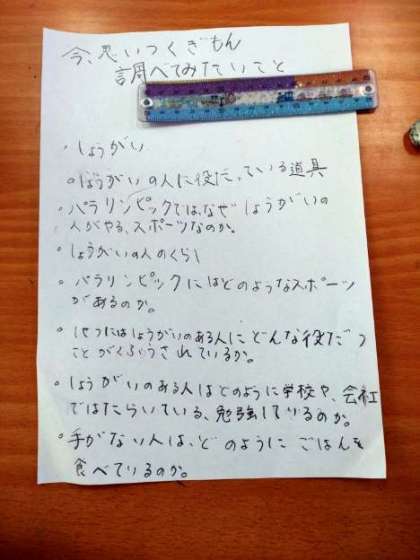 今、思いつくぎもん
調べてみたいこと
・しょうがい
・しょうがいの人に役だっている道具
・パラリンピックでは、なぜしょうがいの
人がやる、スポーツなのか。
・しょうがいの人のくらし
・パラリンピックにはどのようなスポーツ
があるのか。
・しせつにはしょうがいのある人にどんな役だつ
ことがくふうされているか。
・しょうがいのある人はどのように学校や、会社
ではたらいている、勉強しているのか。
・手がない人は、どのようにごはんを
食べているのか。